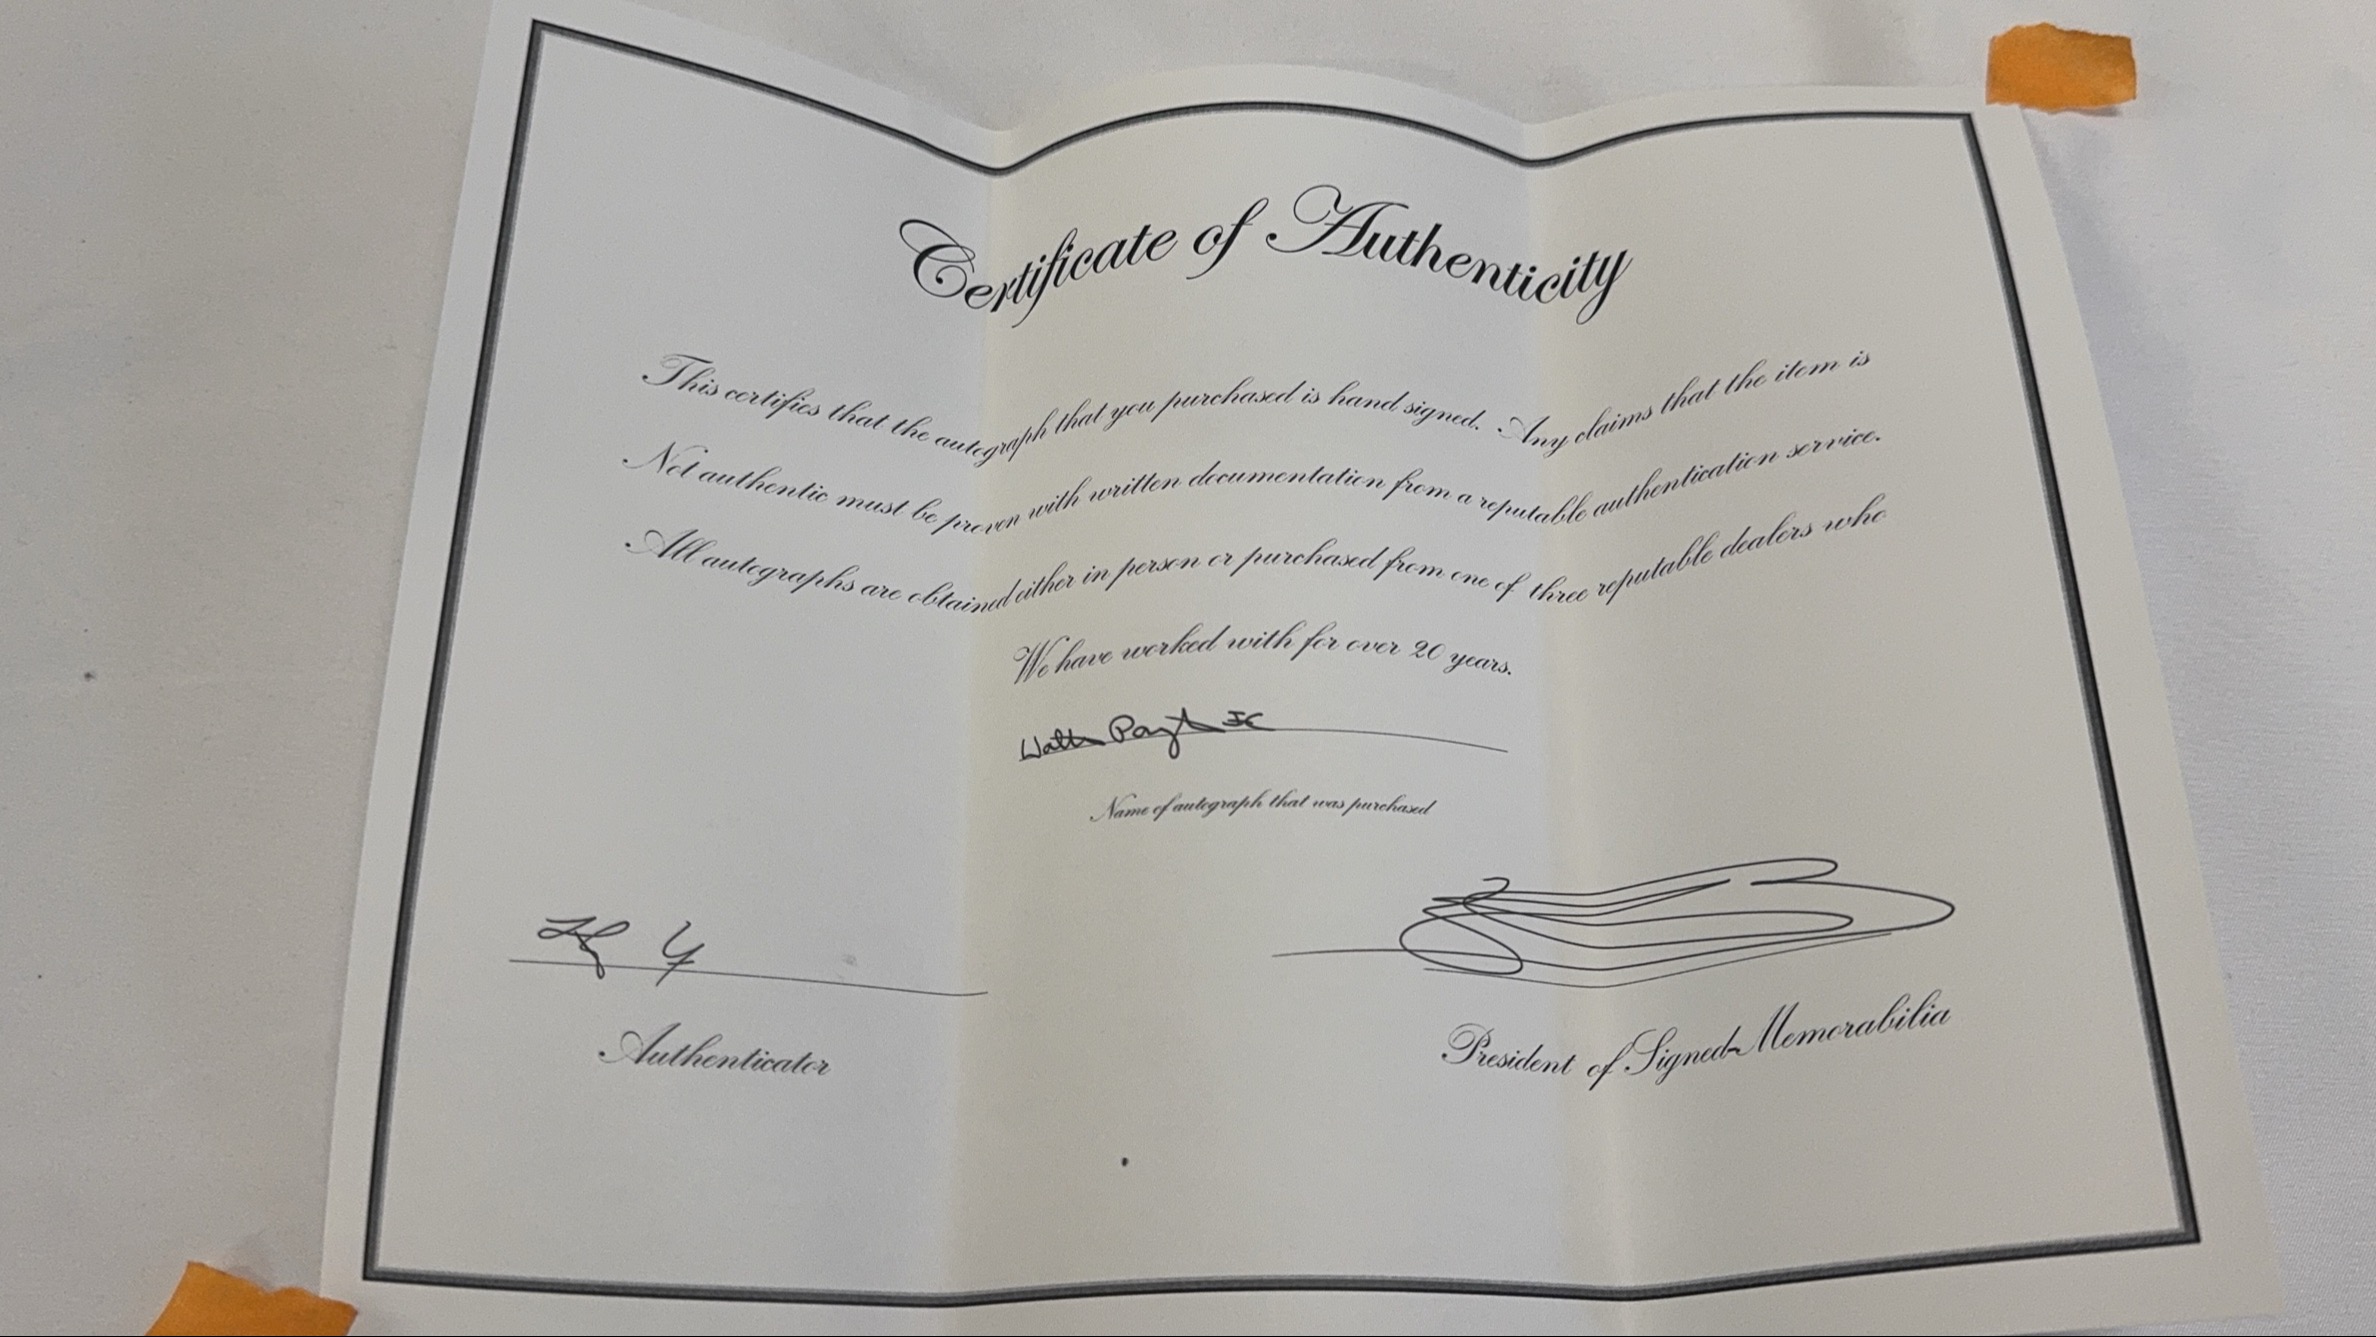 Certificate of Authenticity
This certifies that the autograph that you purchased is hand signed. Any claims that the item is
Not authentic must be proven with written documentation from a reputable authentication service.
All autographs are obtained either in person or purchased from one of three reputable dealers who
We have worked with for over 20 years.
Name of autograph that was purchased
Authenticator
President of Signed-Memorabilia